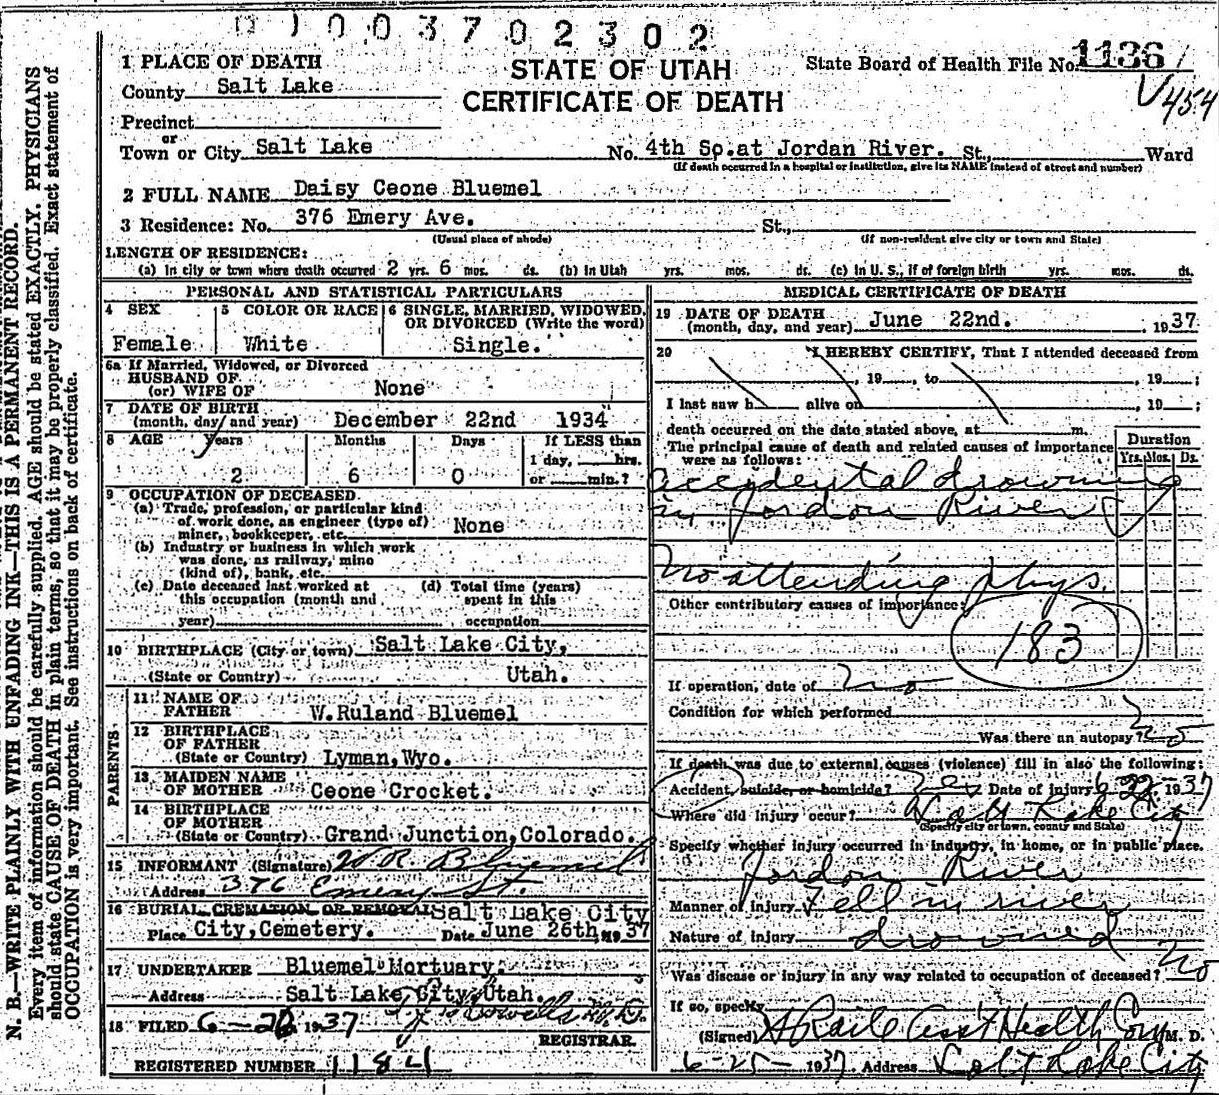 0 1 0 0 3 7 0 2 3 0 2
1 PLACE OF DEATH
STATE OF UTAH
State Board of Health File No. 1136
V454
County Salt Lake
CERTIFICATE OF DEATH
Precinct
or
Town or City Salt Lake No. 4th So. at Jordan River. St., Ward
(If death occurred in a hospital or institution, give its NAME instead of street and number)
2 FULL NAME Daisy Ceone Bluemel
3 Residence: No. 376 Emery Ave. St.,
(Usual place of abode) (If non-resident give city or town and State)
LENGTH OF RESIDENCE:
(a) In city or town where death occurred 2 yrs. 6 mos. ds. (b) In Utah yrs. mos. ds. (c) In U. S., if of foreign birth yrs. mos. ds.
PERSONAL AND STATISTICAL PARTICULARS
4 SEX 5 COLOR OR RACE 6 SINGLE, MARRIED, WIDOWED,
OR DIVORCED (Write the word)
Female White Single.
6a If Married, Widowed, or Divorced
HUSBAND OF
(or) WIFE OF None
7 DATE OF BIRTH
(month, day and year) December 22nd 1934
8 AGE Years Months Days If LESS than
1 day, hrs.
2 6 0 or min.?
9 OCCUPATION OF DECEASED
(a) Trade, profession, or particular kind
of work done, as engineer (type of)
miner, bookkeeper, etc. None
(b) Industry or business in which work
was done, as railway, mine
(kind of), bank, etc.
(c) Date deceased last worked at (d) Total time (years)
this occupation (month and spent in this
year) occupation
10 BIRTHPLACE (City or town) Salt Lake City,
(State or Country) Utah.
PARENTS
11 NAME OF
FATHER W.Ruland Bluemel
12 BIRTHPLACE
OF FATHER
(State or Country) Lyman, Wyo.
13 MAIDEN NAME
OF MOTHER Ceone Crocket.
14 BIRTHPLACE
OF MOTHER
(State or Country) Grand Junction, Colorado.
15 INFORMANT (Signature) W R. Bluemel
Address 376 Emery St.
16 BURIAL, CREMATION OR REMOVAL Salt Lake City
Place City, Cemetery. Date June 26th, 1937
17 UNDERTAKER Bluemel Mortuary.
Address Salt Lake City, Utah.
18 FILED 6-26 1937 M. D.
REGISTRAR.
REGISTERED NUMBER 1184
MEDICAL CERTIFICATE OF DEATH
19 DATE OF DEATH
(month, day, and year) June 22nd. , 1937
20 I HEREBY CERTIFY, That I attended deceased from
, 19 , to , 19 ;
I last saw h alive on , 19 ;
death occurred on the date stated above, at m.
The principal cause of death and related causes of importance
were as follows:
Duration
Yrs. Mos. Ds.
Accidental drowning
in Jordon River
No attending phys.
Other contributory causes of importance:
183
If operation, date of no
Condition for which performed
Was there an autopsy? no
If death was due to external causes (violence) fill in also the following:
Accident, suicide, or homicide? Date of injury 6-22-1937
Where did injury occur? Salt Lake City
(Specify city or town, county and State)
Specify whether injury occurred in industry, in home, or in public place.
Jordon River
Manner of injury Fell in river
Nature of injury drowned
Was disease or injury in any way related to occupation of deceased? no
If so, specify
(Signed) Asst Health Com M. D.
6-25- 1937. Address Salt Lake City
N. B.—WRITE PLAINLY WITH UNFADING INK—THIS IS A PERMANENT RECORD.
Every item of information should be carefully supplied. AGE should be stated EXACTLY. PHYSICIANS
should state CAUSE OF DEATH in plain terms, so that it may be properly classified. Exact statement of
OCCUPATION is very important. See instructions on back of certificate.